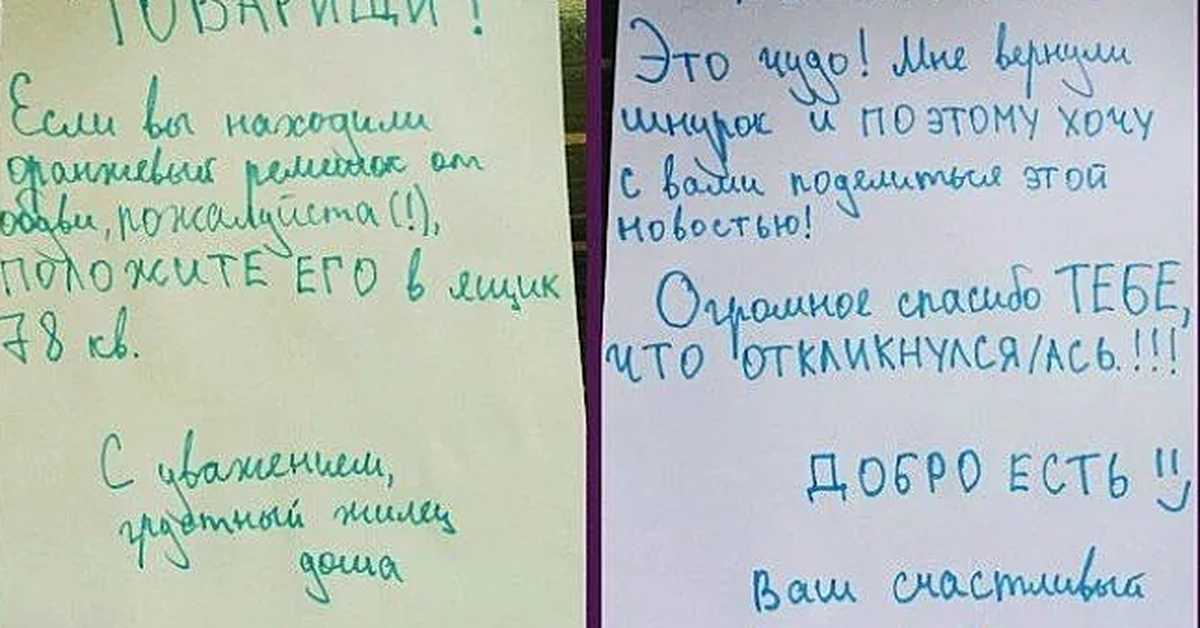 ТОВАРИЩИ!
Если вы находили
оранжевый ремешок от
обуви, пожалуйста(!),
ПОЛОЖИТЕ ЕГО в ящик
78 кв.
С уважением,
грустный жилец
дома
Это чудо! Мне вернули
шнурок и ПОЭТОМУ ХОЧУ
с вами поделиться этой
новостью!
Огромное спасибо ТЕБЕ,
ЧТО ОТКЛИКНУЛСЯ/АСЬ!!!
ДОБРО ЕСТЬ !!
Ваш счастливый